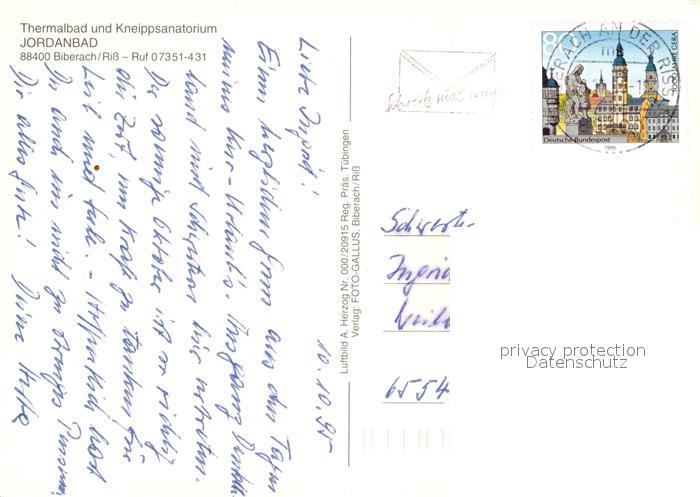 Thermalbad und Kneippsanatorium
JORDANBAD
88400 Biberach/Riß – Ruf 07351-431
10.10.95
Liebe Ingrid!
Einen herzlichen Gruß aus den Tagen
meines Kur-Urlaubs.
Der sonnige Oktober ist so richtig
die Zeit um Kraft zu tanken für
Leib und Seele. – Hoffentlich hast
Du auch ein nicht zu strenges
Dir alles Gute! Deine
Luftbild A. Herzog Nr. 000/20915 Reg. Präs. Tübingen
Verlag: FOTO-GALLUS, Biberach/Riß
Schreib mal
BERACH AN DER RISS
80
1000 JAHRE GERA
Deutsche Bundespost
1995
Schweste
Ingrid
6554
privacy protection
Datenschutz